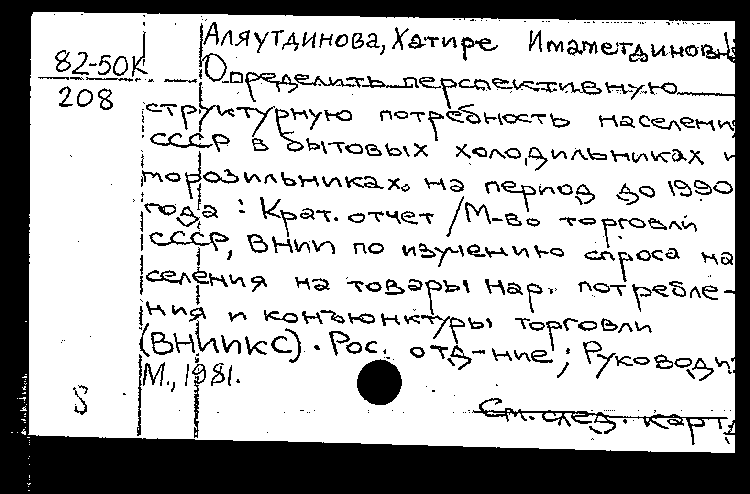 Аляутдинова, Хатире Имаметдиновна
82-50К
208
Определить перспективную
структурную потребность населени
СССР в бытовых холодильниках и
морозильниках на период до 1990
года: Крат. отчет / М-во торговли
СССР, ВНИИ по изучению спроса на-
селения на товары нар. потребле-
ния и конъюнктуры торговли
(ВНИИКС). Рос. отд-ние; Руководи
М., 1981.
S
См. след. карт.